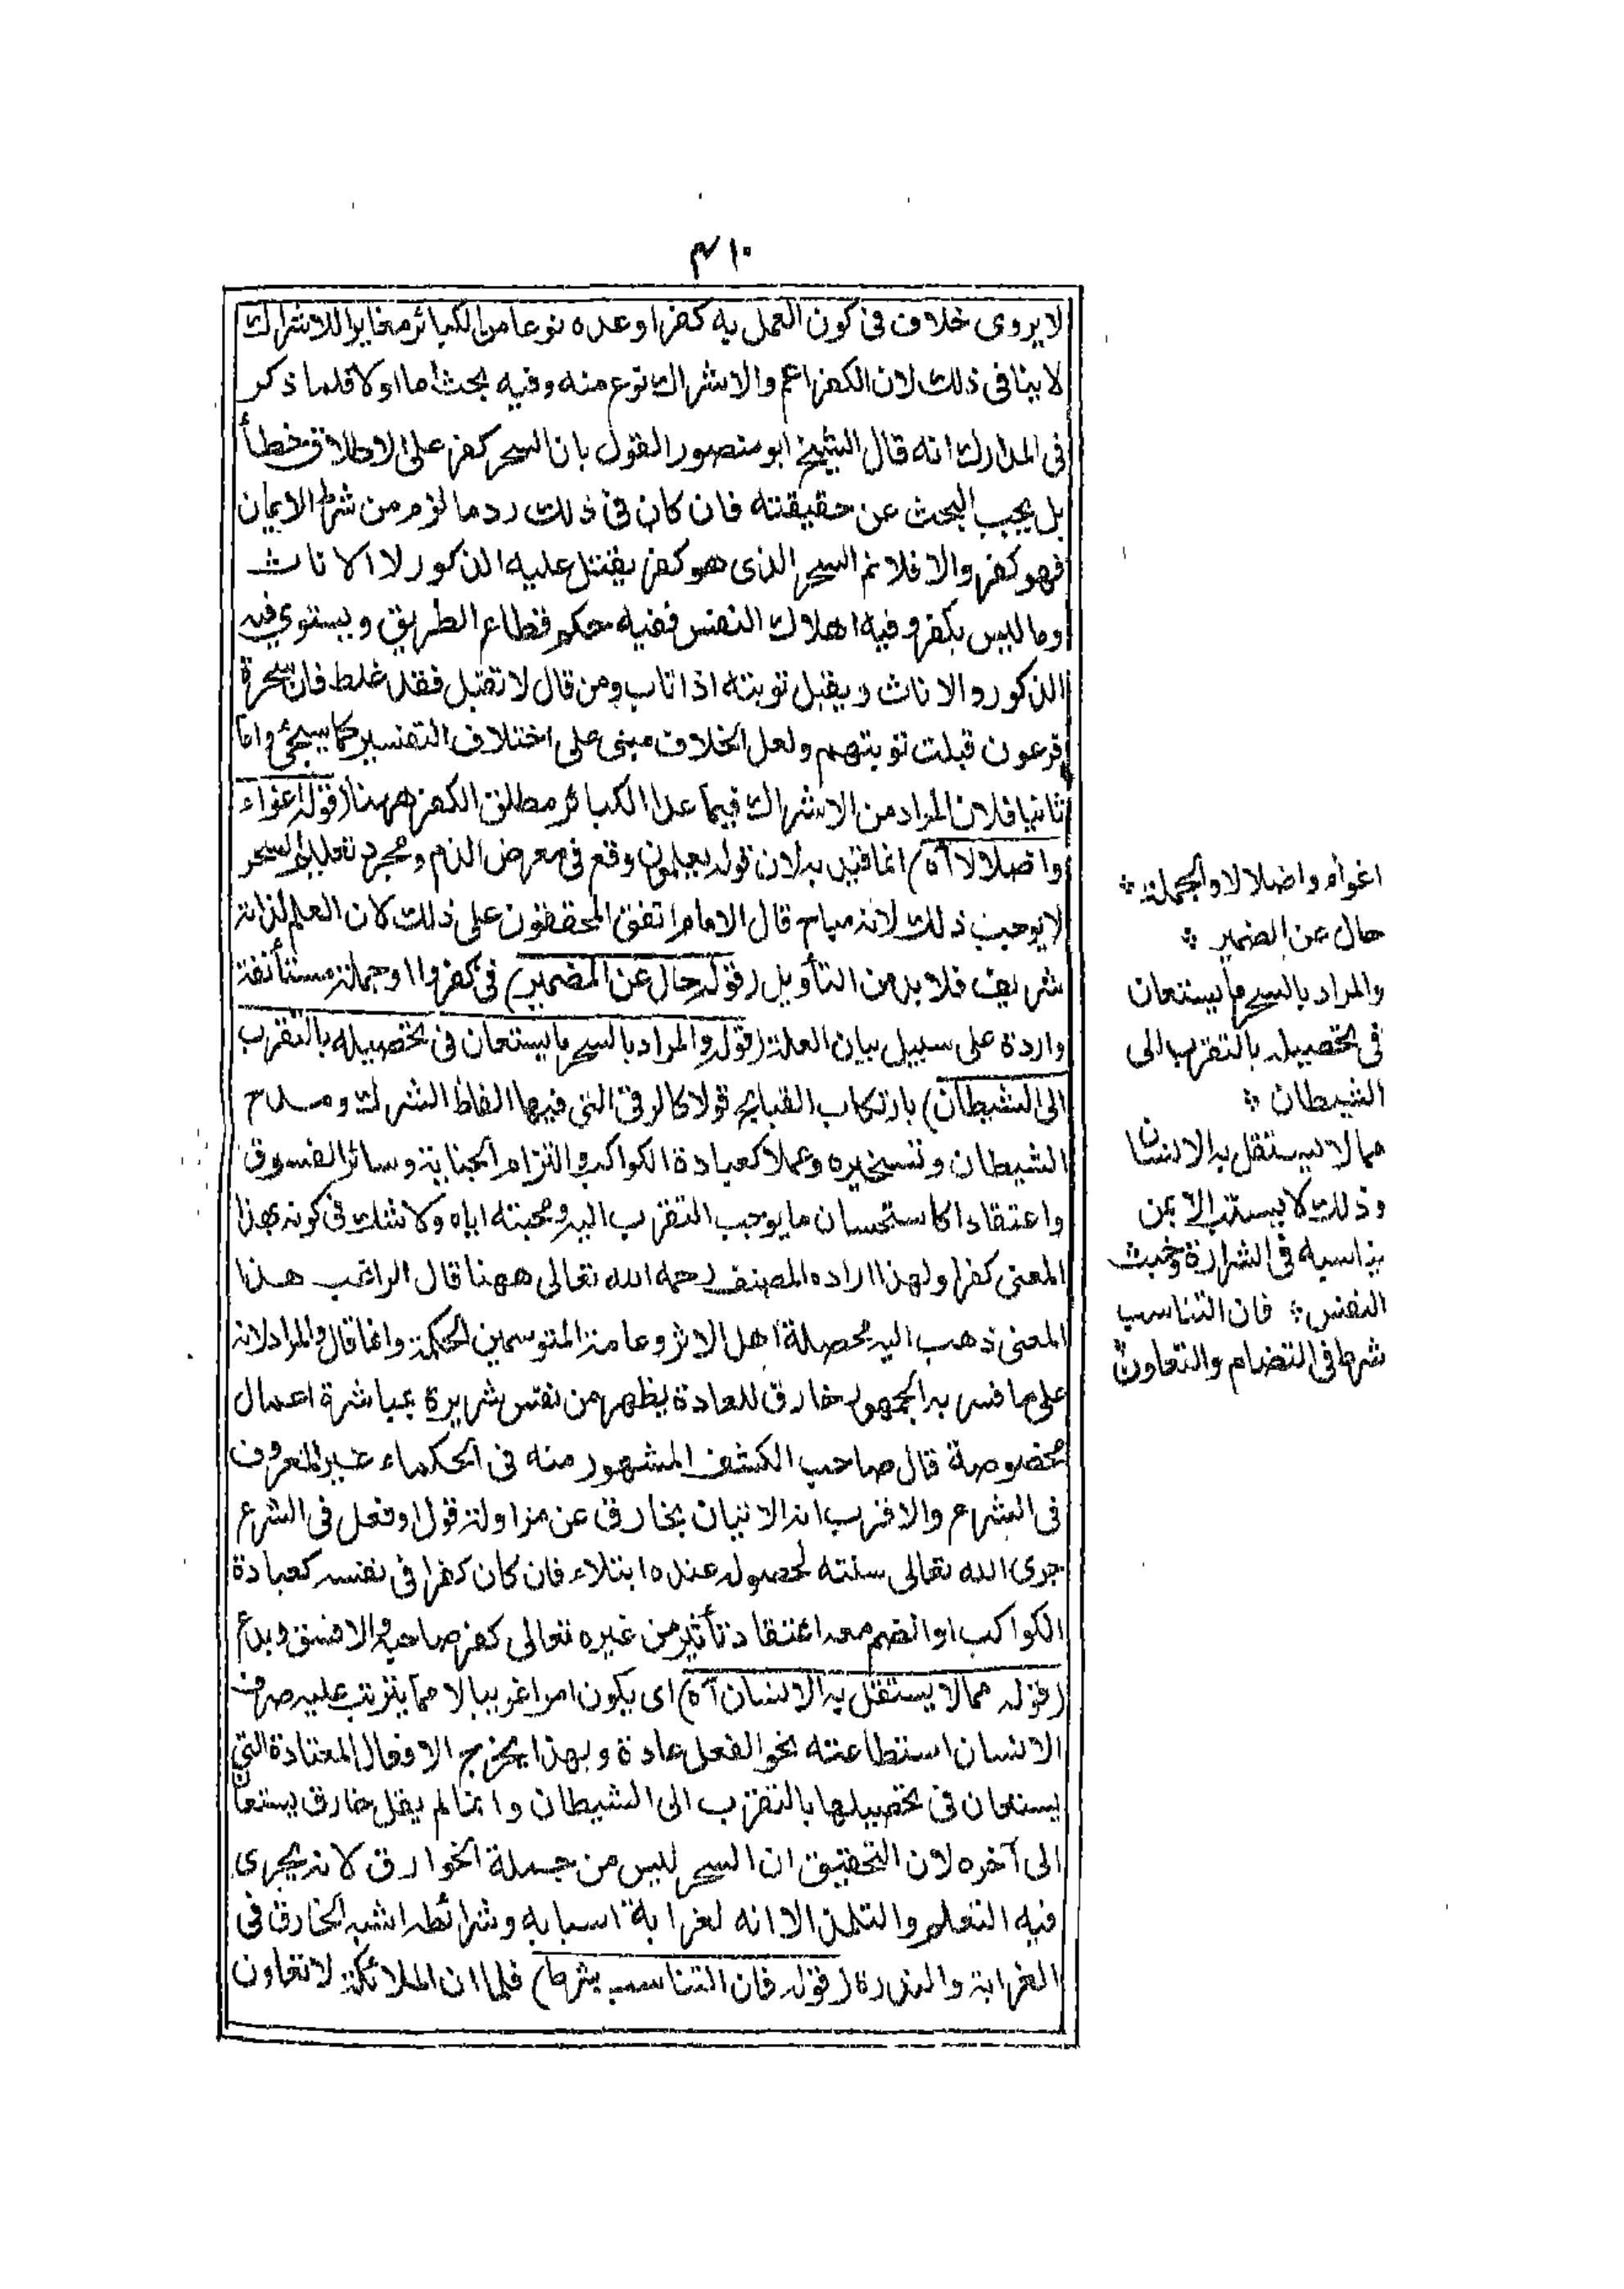 ٤١٠
لا يروى خلاف فى كون العمل به كفرا وعده نوعا من الكبائر مغايرا للاشراك
لا ينافى ذلك لان الكفر اعم والاشراك نوع منه وفيه بحث اما اولا فلما ذكر
فى المدارك انه قال الشيخ ابو منصور القول بان السحر كفر على الاطلاق خطأ
بل يجب البحث عن حقيقته فان كان فى ذلك رد ما لزم من شرط الايمان
فهو كفر والا فلا ثم السحر الذى هو كفر يقتل عليه الذكور لا الاناث
وما ليس بكفر وفيه اهلاك النفس ففيه حكم قطاع الطريق ويستوي فيه
الذكور والاناث ويقبل توبته اذا تاب ومن قال لا تقبل فقد غلط فان سحرة
فرعون قبلت توبتهم ولعل الخلاف مبنى على اختلاف التفسير كما سيجئ واما
ثانيا فلان المراد من الاشراك فيما عدا الكبائر مطلق الكفر ههنا (قوله اغواء
واضلالا آه) انما قيد به لان قوله يعلمون وقع فى معرض الذم ومجرد تعليم السحر
لا يوجب ذلك لانه مباح قال الامام اتفق المحققون على ذلك لان العلم لذاته
شريف فلا بد من التأويل (قوله حال عن الضمير) فى كفروا او جملة مستأنفة
واردة على سبيل بيان العلة (قوله والمراد بالسحر ما يستعان فى تحصيله بالتقرب
الى الشيطان) بارتكاب القبايح قولا كالرقى التى فيها الفاظ الشرك ومدح
الشيطان وتسخيره وعملا كعبادة الكواكب والتزام الجنابة وسائر الفسوق
واعتقادا كاستحسان ما يوجب التقرب اليه ومحبته اياه ولا شك فى كونه بهذا
المعنى كفرا ولهذا اراده المصنف رحمه الله تعالى ههنا قال الراغب هذا
المعنى ذهب اليه محصلة اهل الاثر وعامة المتوسمين الحكمة وانما قال والمراد لانه
على ما فسر به الجمهور خارق للعادة يظهر من نفس شريرة بمباشرة اعمال
مخصوصة قال صاحب الكشف المشهور منه فى الحكماء غير المعروف
فى الشرع والاقرب انه الاتيان بخارق عن مزاولة قول او فعل فى الشرع
جرى الله تعالى سنته لحصوله عنده ابتلاء فان كان كفرا فى نفسه كعبادة
الكواكب او انضم معه اعتقاد تأثير من غيره تعالى كفر صاحبه والا فسق وبدع
(قوله مما لا يستقل به الانسان آه) اى يكون امرا غريبا لا مما يترتب عليه صرف
الانسان استطاعته نحو الفعل عادة وبهذا يخرج الافعال المعتادة التى
يستعان فى تحصيلها بالتقرب الى الشيطان وانما لم يقل خارق يستعان
الى آخره لان التحقيق ان السحر ليس من جملة الخوارق لانه يجرى
فيه التعلم والتلمذ الا انه لغرابة اسبابه وشرائطه اشبه الخارق فى
الغرابة والندرة (قوله فان التناسب شرط) فلما ان الملائكة لا تعاون
اغواء واضلالا والجملة
حال عن الضمير
والمراد بالسحر ما يستعان
فى تحصيله بالتقرب الى
الشيطان
مما لا يستقل به الانسان
وذلك لا يستتب الا بمن
يناسبه فى الشرارة وخبث
النفس فان التناسب
شرط فى التضام والتعاون